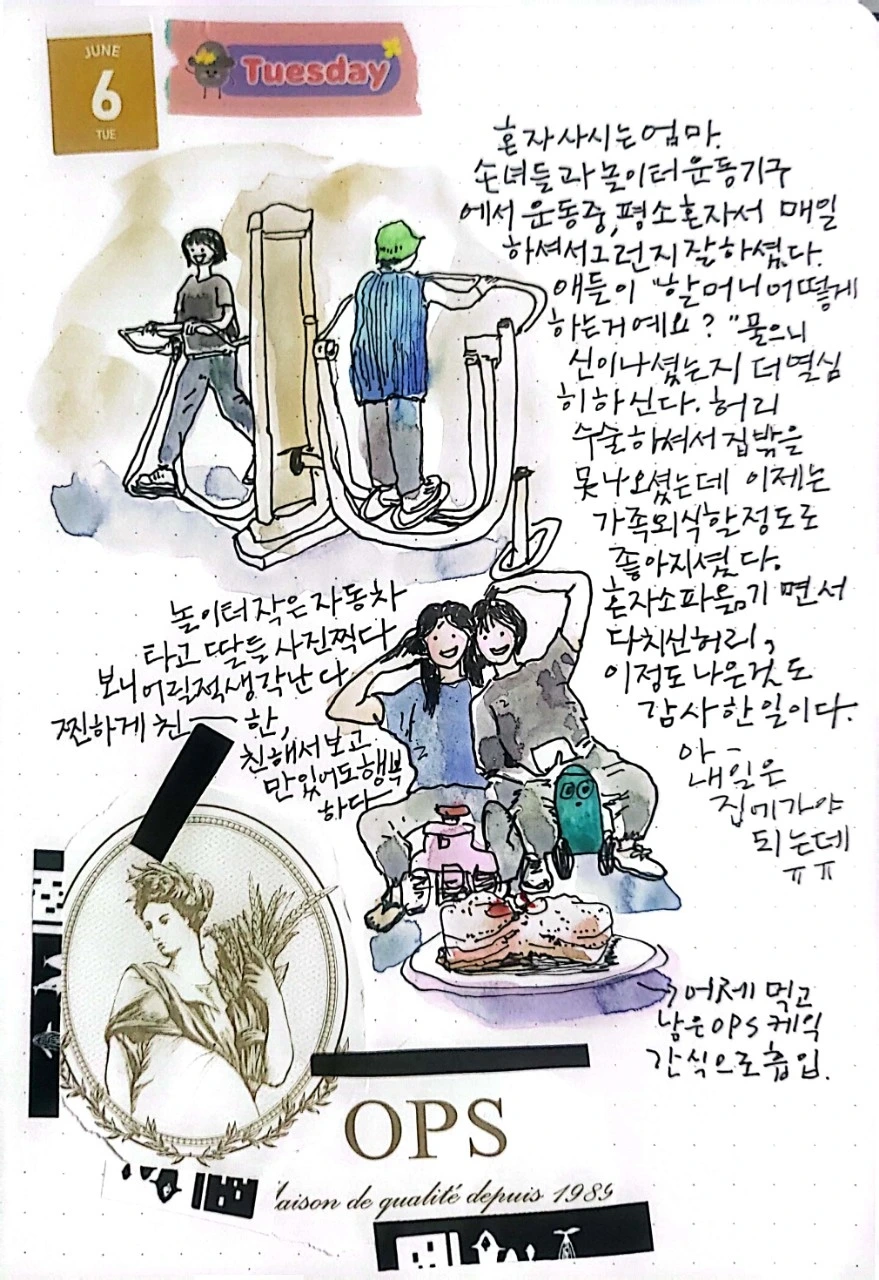 JUNE
6
TUE
Tuesday
혼자 사시는 엄마.
손녀들과 놀이터 운동기구
에서 운동중, 평소 혼자서 매일
하셔서 그런지 잘하셨다.
애들이 "할머니 어떻게
하는거예요?" 물으니
신이나셨는지 더 열심
히 하신다. 허리
수술하셔서 집밖을
못나오셨는데 이제는
가족외식할정도로
좋아지셨다.
혼자 소파 옮기면서
다치신 허리,
이정도 나은것도
감사한 일이다.
아-
내일은
집에가야
되는데
ㅠㅠ
놀이터 작은 자동차
타고 딸들 사진찍다
보니 어릴적 생각난다.
찐하게 친ㅡ한,
친해서 보고
만 있어도 행복
하다
→ 어제 먹고
남은 OPS 케익
간식으로 흡입.
OPS
aison de qualité depuis 1989